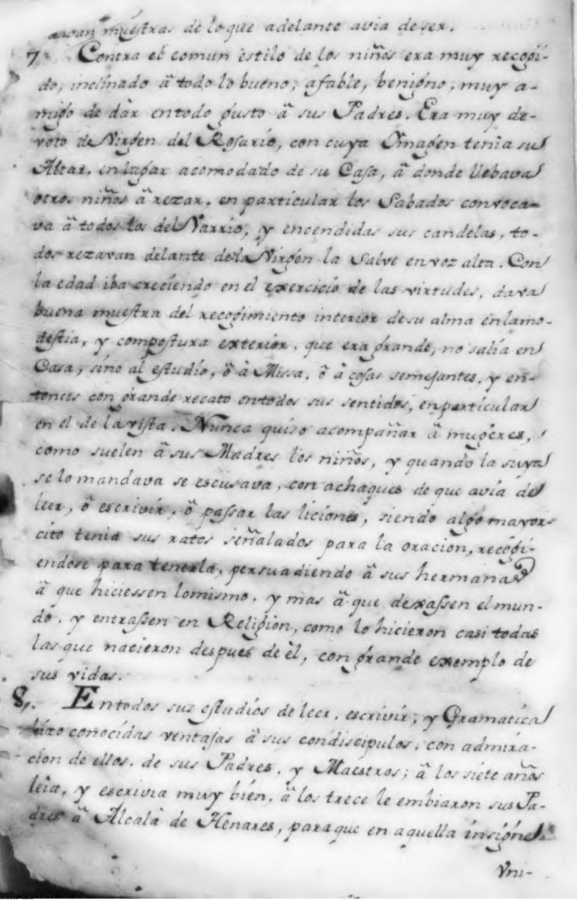 muestras de lo que adelante avia de ser.
7. Contra el comun estilo de los niños era muy recogi-
do, inclinado â todo lo bueno; afable, benigno, muy a-
migo de dar en todo gusto â sus Padres. Era muy de-
voto de Virgen del Rosario, con cuya Ymagen tenia su
Altar, en lugar acomodado de su Casa, â donde llebava
otros niños â rezar, en particular los Sabados convoca-
va â todos los del Varrio, y encendidas sus candelas, to-
dos rezavan delante de la Virgen la Salve en voz alta. Con
la edad iba creciendo en el exercicio de las virtudes, dava
buena muestra del recogimiento interior de su alma en la mo-
destia, y compostura exterior, que era grande, no salia en
Casa, sino al estudio, ô â Missa, ô â cosas semejantes, y en-
tonces con grande recato en todos sus sentidos, en particular
en el de la vista. Nunca quiso acompañar â mugeres,
como suelen â sus Madres los niños, y quando la suya
se lo mandava se escusava, con achaques de que avia de
leer, ô escrivir, ô passar las liciones, siendo algo mayor-
cito tenia sus ratos señalados para la oracion, recogi-
endose para tenerla, persuadiendo â sus hermanas
â que hiciessen lo mismo, y mas â que dexassen el mun-
do, y entrassen en Religion, como lo hicieron casi todas
las que nacieron despues de èl, con grande exemplo de
sus vidas.
8. En todos sus estudios de leer, escrivir, y Gramatica
hizo conocidas ventajas â sus condiscipulos, con admira-
cion de ellos, de sus Padres, y Maestros; â los siete años
leia, y escrivia muy bien, â los trece le embiaron sus Pa-
dres â Alcalà de Henares, para que en aquella insigne
Vni-